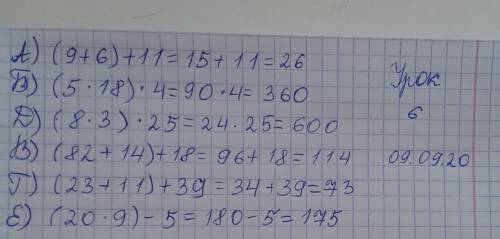 А) (9+6)+11=15+11=26
Б) (5·18)·4=90·4=360
Д) (8·3)·25=24·25=600
В) (82+14)+18=96+18=114
Г) (23+11)+39=34+39=73
Е) (20·9)-5=180-5=175
Урок
6
09.09.20